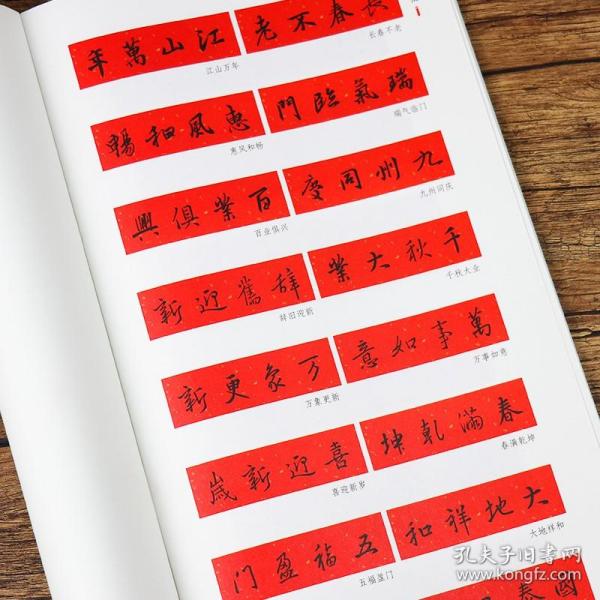 長春不老
长春不老
江山萬年
江山万年
瑞氣臨門
瑞气临门
惠風和暢
惠风和畅
九州同慶
九州同庆
百業俱興
百业俱兴
千秋大業
千秋大业
辞舊迎新
辞旧迎新
萬事如意
万事如意
万象更新
万象更新
春滿乾坤
春满乾坤
喜迎新歲
喜迎新岁
大地祥和
大地祥和
五福盈門
五福盈门
國泰
孔夫子旧书网
www.kongfz.com